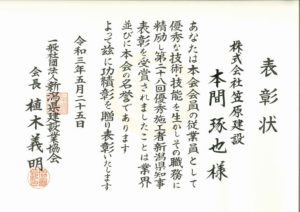 表彰状
株式会社笠原建設
本間琢也様
あなたは本会会員の従業員として
優秀な技術技能を生かしその職務に
精励し第二十八回優秀施工者新潟県知事
表彰を受賞されましたことは業界
並びに本会の名誉であります
よって茲に功績章を贈り表彰いたします
令和三年五月二十五日
一般社団法人新潟県建設業協会
会長 植木義明